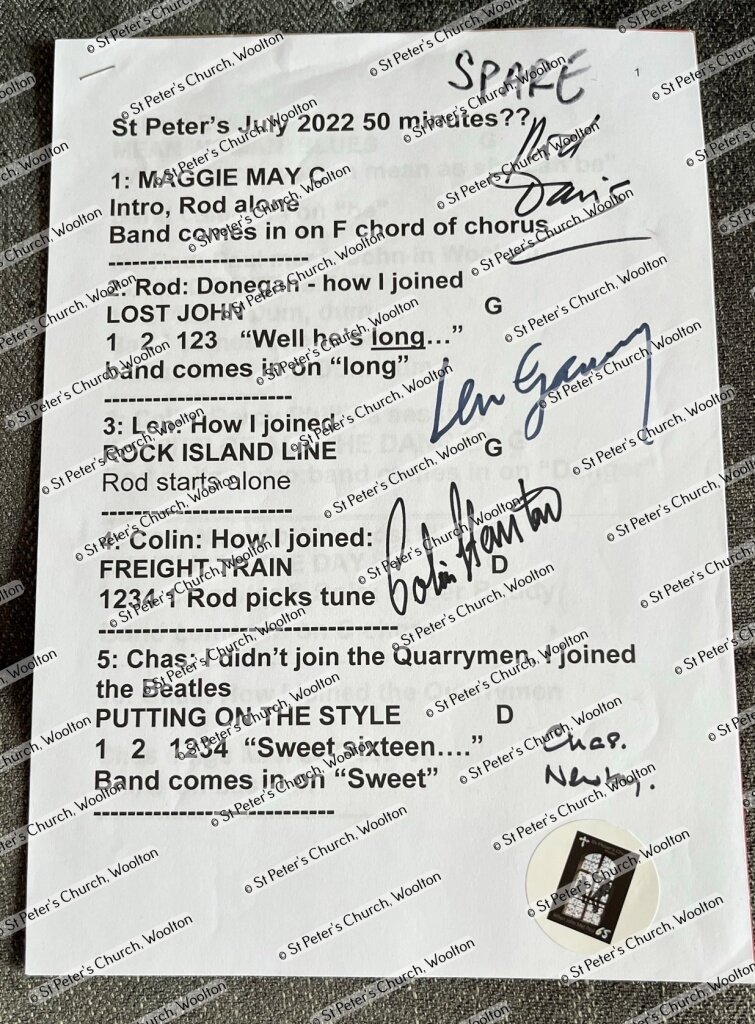 SPARE
1
St Peter's July 2022 50 minutes??
Rod
Davis
1: MAGGIE MAY C
Intro, Rod alone
Band comes in on F chord of chorus
------------------------
2: Rod: Donegan - how I joined
LOST JOHN G
1 2 123 “Well he's long…”
band comes in on “long”
------------------------
3: Len: How I joined:
ROCK ISLAND LINE G
Rod starts alone
------------------------
Len Garry
4: Colin: How I joined:
FREIGHT TRAIN D
1234 1 Rod picks tune
------------------------------------
Colin Hanton
5: Chas: I didn't join the Quarrymen, I joined
the Beatles
PUTTING ON THE STYLE D
1 2 1234 “Sweet sixteen….”
Band comes in on “Sweet”
-----------------------------
Chas.
Newby.
65
© St Peter's Church, Woolton